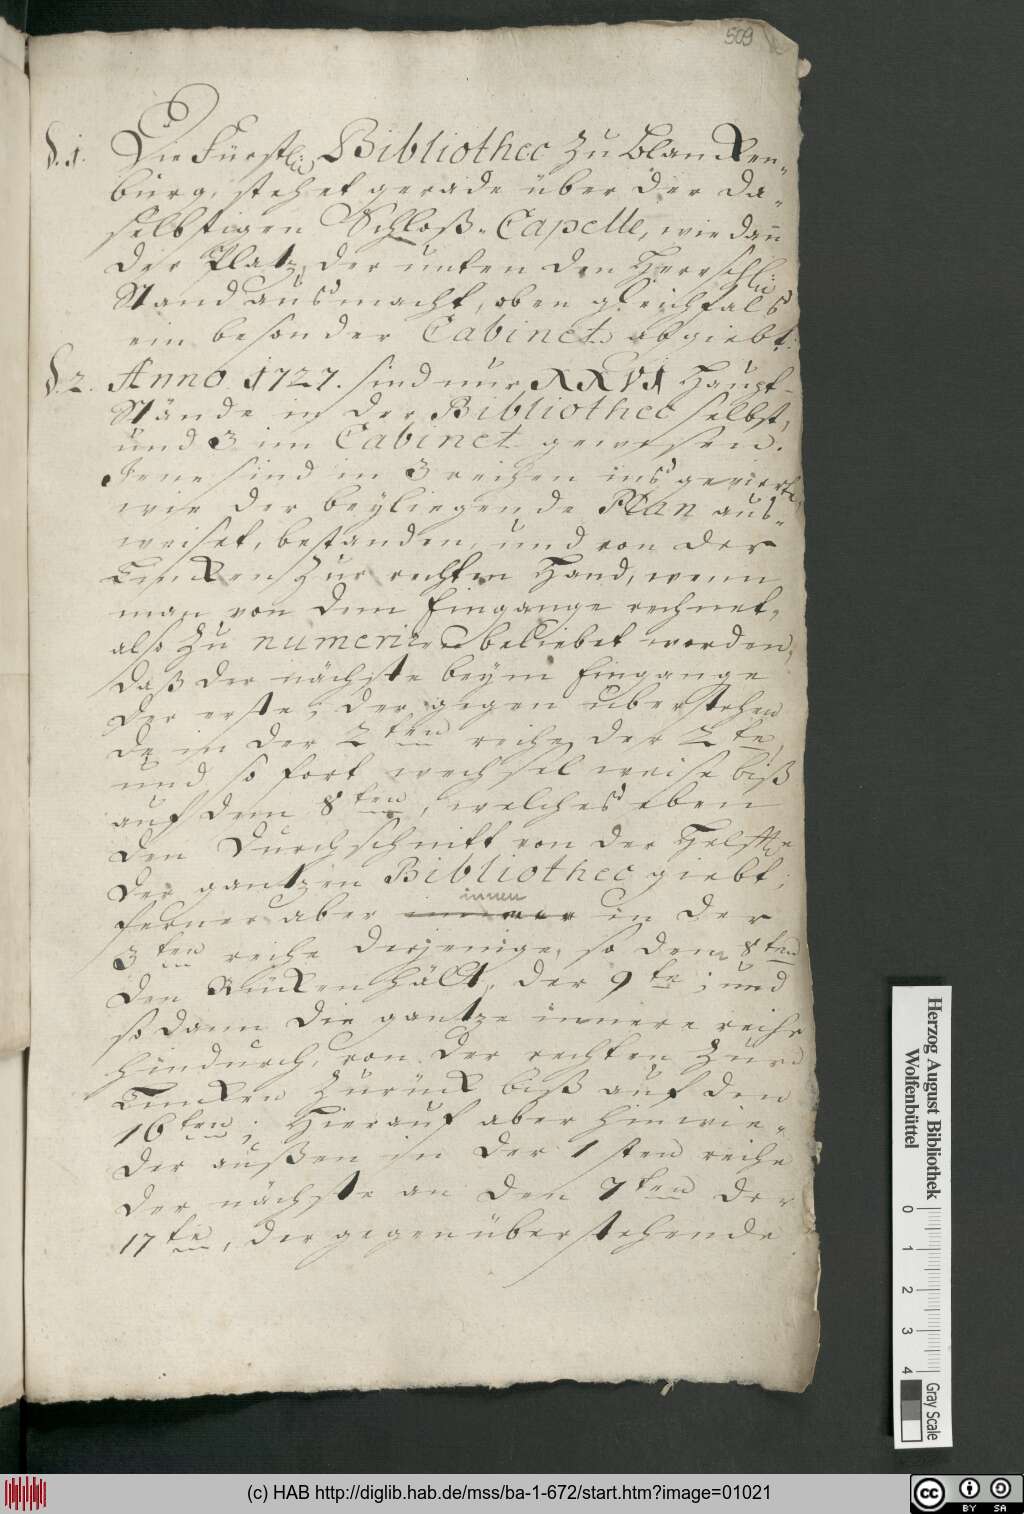 509
§. 1. Die Fürstl. Bibliothec zu Blancken-
burg, stehet gerade über der da-
selbstigen Schloß-Capelle, wie dann
der Platz, der unten den Herrschl.
Stand ausmacht, oben gleichfals
ein besonder Cabinet abgiebt.
§ 2. Anno 1727. sind nur XXVI Haupt-
Stände in der Bibliothec selbst,
und 3 im Cabinet gewesen.
Jene sind in 3 reihen ins gevierte,
wie der beyliegende Plan aus-
weiset, bestanden, und von der
Lincken zur rechten Hand, wenn
man von dem Eingange rechnet,
also zu numeriren beliebet worden,
daß der nächste beym Eingange
der erste; der gegen überstehen
de in der 2ten reihe der 2te,
und so fort wechselweise biß
auf dem 8ten, welches eben
den Durchschnitt von der Helffte
der gantzen Bibliothec giebt;
innen
ferner aber immer in der
3ten reihe derjenige, so dem 8ten
den Rücken hält, der 9te; und
so dann die gantze innere reihe
hindurch, von der rechten zur
Lincken zurück biß auf den
16ten; Hierauf aber hinwie-
der außen in der 1sten reihe
der nächste an den 7ten der
17te, der gegenüberstehende
Herzog August Bibliothek
Wolfenbüttel
0 1 2 3 4
Gray Scale
(c) HAB http://diglib.hab.de/mss/ba-1-672/start.htm?image=01021
cc BY SA